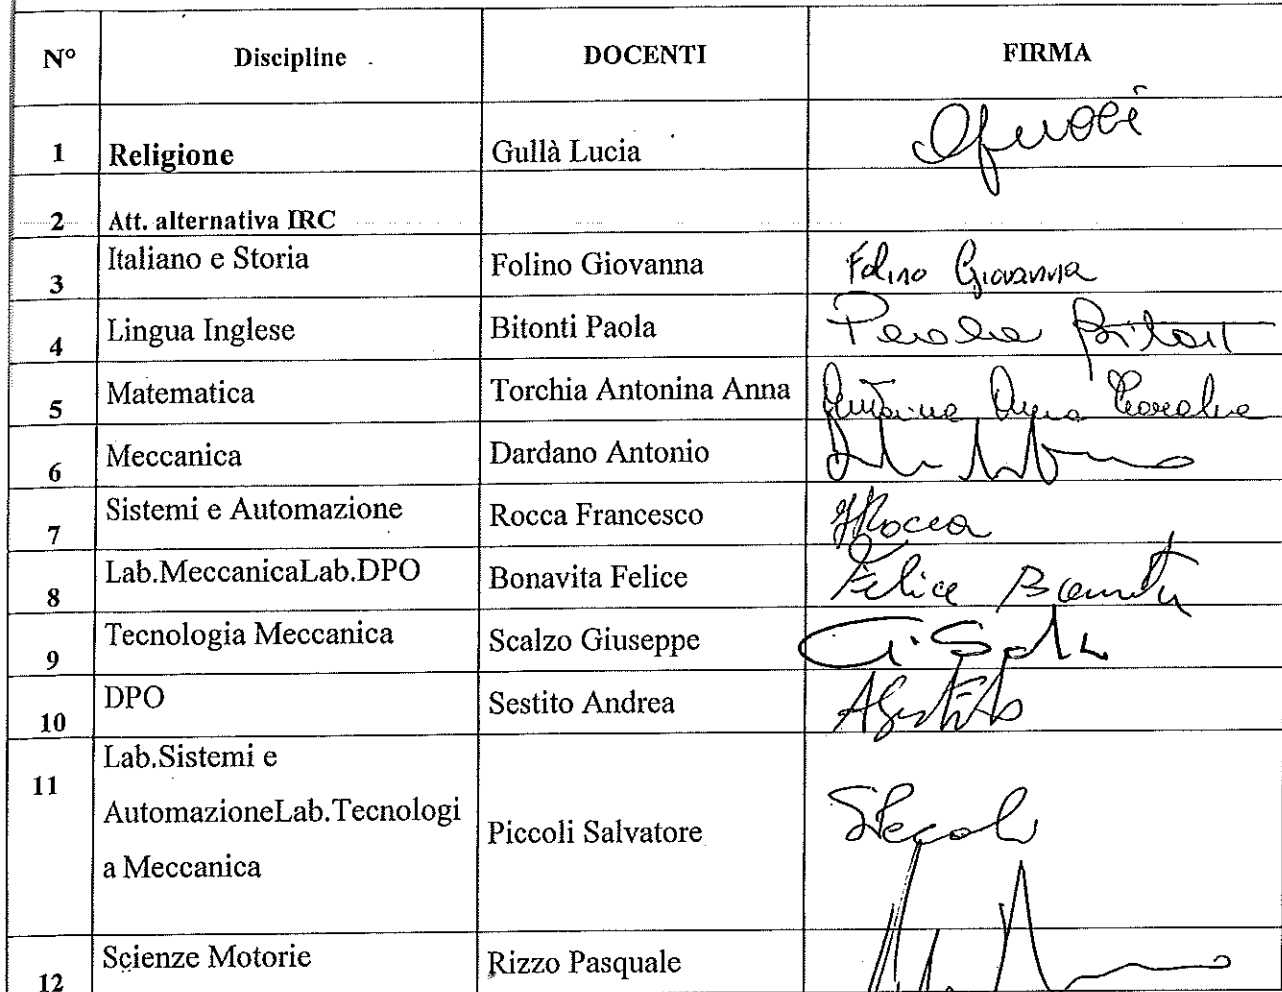 N° Discipline DOCENTI FIRMA
1 Religione Gullà Lucia
2 Att. alternativa IRC
3 Italiano e Storia Folino Giovanna Folino Giovanna
4 Lingua Inglese Bitonti Paola Paola Bitonti
5 Matematica Torchia Antonina Anna Antonina Anna Torchia
6 Meccanica Dardano Antonio
7 Sistemi e Automazione Rocca Francesco FRocca
8 Lab.MeccanicaLab.DPO Bonavita Felice Felice Bonavita
9 Tecnologia Meccanica Scalzo Giuseppe
10 DPO Sestito Andrea
11 Lab.Sistemi e
AutomazioneLab.Tecnologi
a Meccanica
Piccoli Salvatore
12 Scienze Motorie Rizzo Pasquale